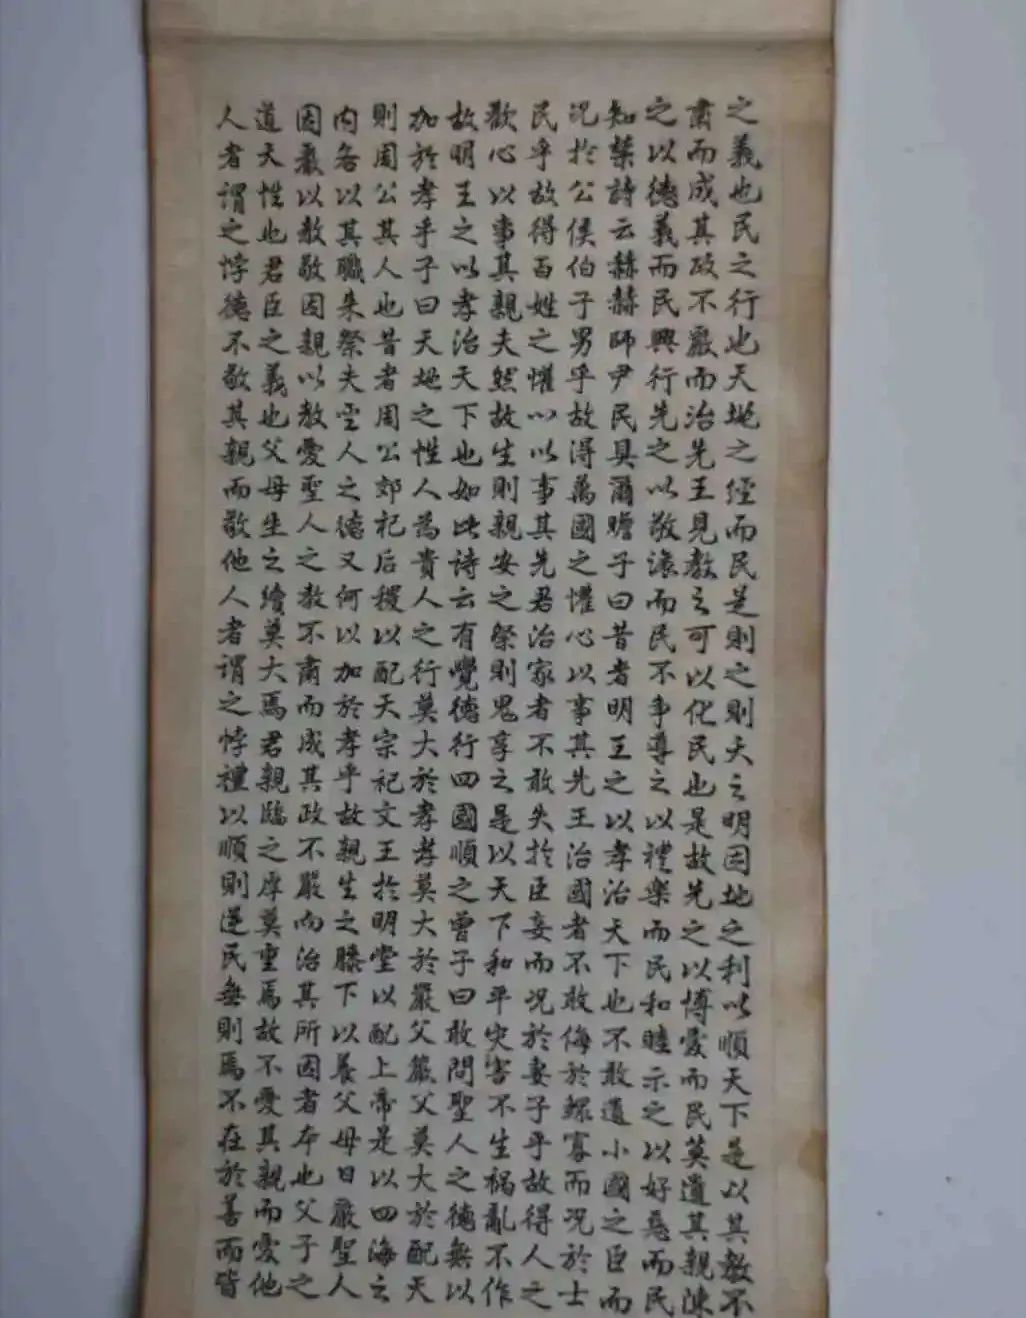 之義也民之行也天地之經而民是則之則天之明因地之利以順天下是以其教不
肅而成其政不嚴而治先王見教之可以化民也是故先之以博愛而民莫遺其親陳
之以德義而民興行先之以敬讓而民不爭導之以禮樂而民和睦示之以好惡而民
知禁詩云赫赫師尹民具爾瞻子曰昔者明王之以孝治天下也不敢遺小國之臣而
況於公侯伯子男乎故得萬國之懽心以事其先王治國者不敢侮於鰥寡而況於士
民乎故得百姓之懽心以事其先君治家者不敢失於臣妾而況於妻子乎故得人之
歡心以事其親夫然故生則親安之祭則鬼享之是以天下和平災害不生禍亂不作
故明王之以孝治天下也如此詩云有覺德行四國順之曾子曰敢問聖人之德無以
加於孝乎子曰天地之性人為貴人之行莫大於孝孝莫大於嚴父嚴父莫大於配天
則周公其人也昔者周公郊祀后稷以配天宗祀文王於明堂以配上帝是以四海之
內各以其職来祭夫聖人之德又何以加於孝乎故親生之膝下以養父母日嚴聖人
因嚴以教敬因親以教愛聖人之教不肅而成其政不嚴而治其所因者本也父子之
道天性也君臣之義也父母生之續莫大焉君親臨之厚莫重焉故不愛其親而愛他
人者謂之悖德不敬其親而敬他人者謂之悖禮以順則逆民無則焉不在於善而皆